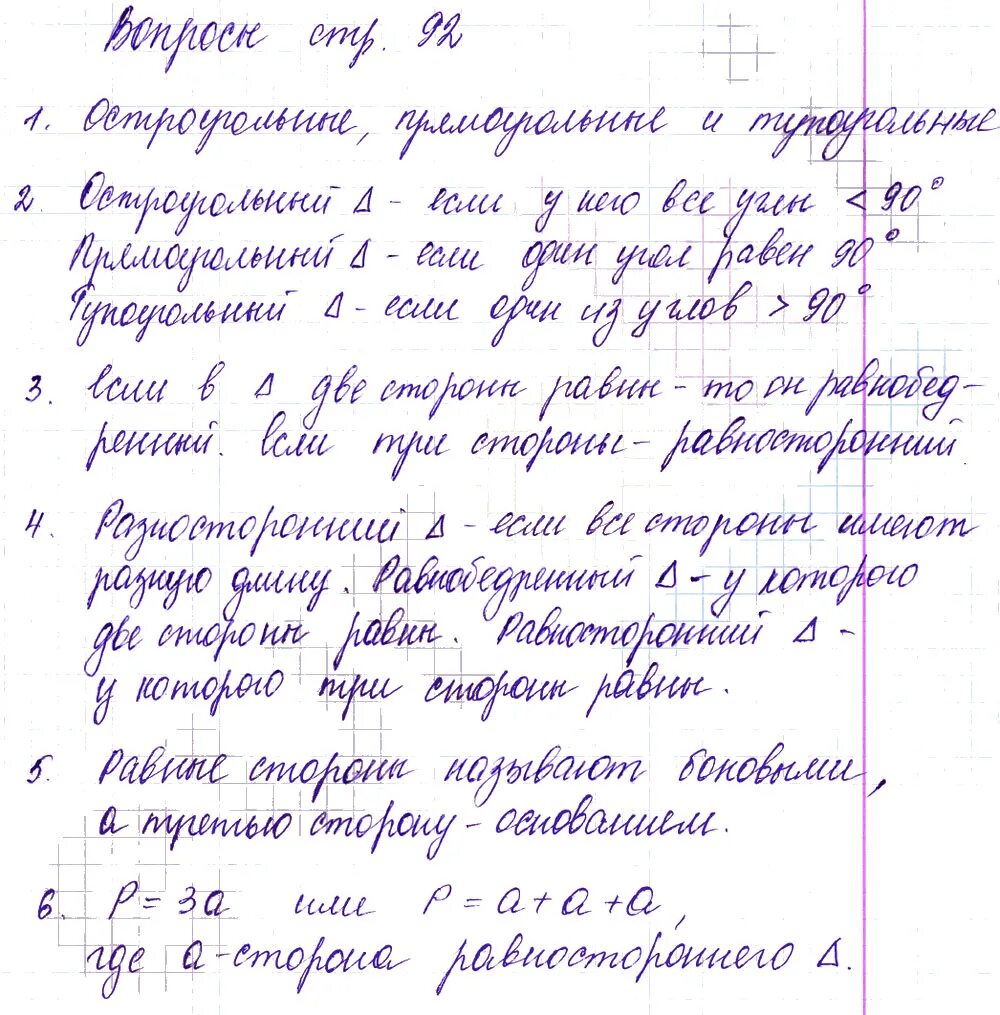 Вопросы стр. 92
1. Остроугольные, прямоугольные и тупоугольные
2. Остроугольный Δ - если у него все углы < 90°
Прямоугольный Δ - если один угол равен 90°
Тупоугольный Δ - если один из углов > 90°
3. Если в Δ две стороны равны - то он равнобед-
ренный. Если три стороны - равносторонний
4. Разносторонний Δ - если все стороны имеют
разную длину. Равнобедренный Δ - у которого
две стороны равны. Равносторонний Δ -
у которого три стороны равны.
5. Равные стороны называют боковыми,
а третью сторону - основанием.
6. P = 3a или P = a + a + a,
где a - сторона равностороннего Δ.